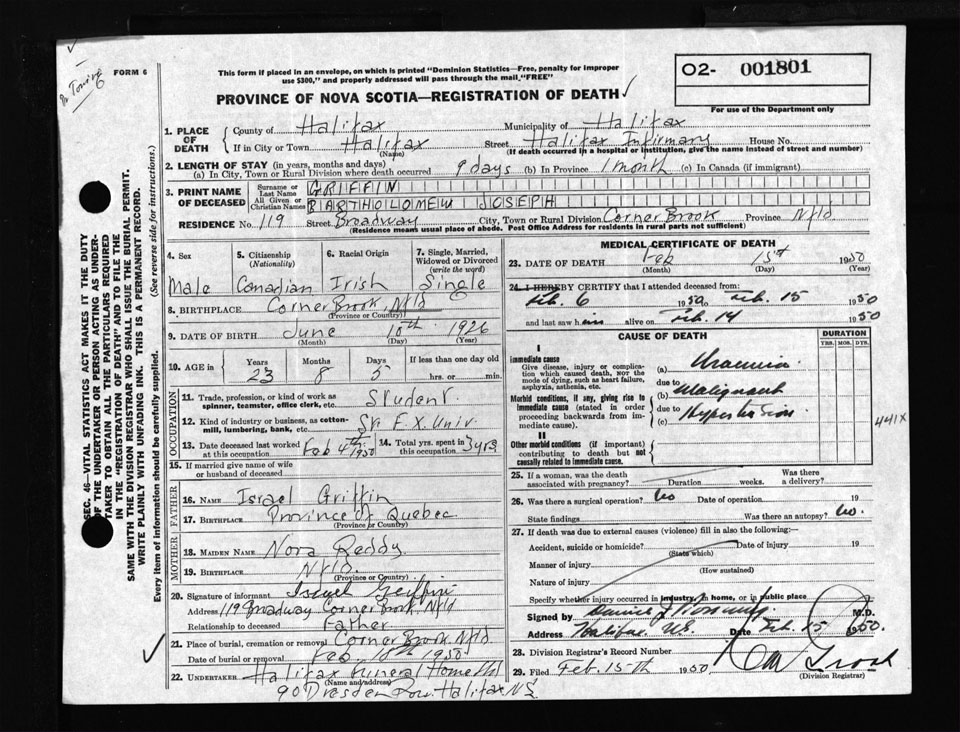 FORM 6
This form if placed in an envelope, on which is printed "Dominion Statistics—Free, penalty for improper
use $300," and properly addressed will pass through the mail "FREE"
O2- 001801
For use of the Department only
PROVINCE OF NOVA SCOTIA—REGISTRATION OF DEATH
1. PLACE OF DEATH { County of Halifax Municipality of Halifax
If in City or Town Halifax (Name) Street Halifax Infirmary House No.
(If death occurred in a hospital or institution, give the name instead of street and number)
2. LENGTH OF STAY (in years, months and days)
(a) In City, Town or Rural Division where death occurred 9 days (b) In Province 1 month (c) In Canada (if immigrant)
3. PRINT NAME OF DECEASED { Surname or Last Name GRIFFIN
All Given or Christian Names BARTHOLOMEW JOSEPH
RESIDENCE No. 119 Street Broadway City, Town or Rural Division Corner Brook Province Nfld
(Residence means usual place of abode. Post Office Address for residents in rural parts not sufficient)
4. Sex Male
5. Citizenship (Nationality) Canadian
6. Racial Origin Irish
7. Single, Married, Widowed or Divorced (write the word) Single
8. BIRTHPLACE Corner Brook, Nfld
(Province or Country)
9. DATE OF BIRTH June 10th 1926
(Month) (Day) (Year)
10. AGE in { Years 23 Months 8 Days 5 If less than one day old
hrs. or min.
OCCUPATION
11. Trade, profession, or kind of work as spinner, teamster, office clerk, etc. Student
12. Kind of industry or business, as cotton-mill, lumbering, bank, etc. St. F. X. Univ.
13. Date deceased last worked at this occupation Feb 4th 1950
14. Total yrs. spent in this occupation 3 yrs
15. If married give name of wife or husband of deceased
FATHER
16. NAME Israel Griffin
17. BIRTHPLACE Province of Quebec
(Province or Country)
MOTHER
18. MAIDEN NAME Nora Reddy
19. BIRTHPLACE Nfld.
(Province or Country)
20. Signature of informant Israel Griffin
Address 119 Broadway Corner Brook, Nfld
Relationship to deceased Father
21. Place of burial, cremation or removal Corner Brook, Nfld.
Date of burial or removal Feb 18th 1950
22. UNDERTAKER Halifax Funeral Home Ltd
(Name and address)
90 Dresden Row Halifax N.S.
MEDICAL CERTIFICATE OF DEATH
23. DATE OF DEATH Feb 15th 1950
(Month) (Day) (Year)
24. I HEREBY CERTIFY that I attended deceased from:
Feb. 6 1950 to Feb. 15 1950
and last saw him alive on Feb. 14 1950
CAUSE OF DEATH
DURATION
YRS. MOS. DYS.
I
Immediate cause
Give disease, injury or complication which caused death, NOT the mode of dying, such as heart failure, asphyxia, asthenia, etc.
(a) Uraemia
due to
Morbid conditions, if any, giving rise to immediate cause (stated in order proceeding backwards from immediate cause).
(b) Malignant
due to Hypertension
(c)
441X
II
Other morbid conditions (if important) contributing to death but not causally related to immediate cause.
25. If a woman, was the death associated with pregnancy? Duration weeks. Was there a delivery?
26. Was there a surgical operation? No Date of operation 19
State findings Was there an autopsy? No.
27. If death was due to external causes (violence) fill in also the following—
Accident, suicide or homicide? Date of injury 19
(State which)
Manner of injury
(How sustained)
Nature of injury
Specify whether injury occurred in industry, in home, or in public place
Signed by M.D.
Address Halifax N.S. Date Feb. 15 1950.
28. Division Registrar's Record Number
29. Filed Feb. 15th 1950
(Division Registrar)
SEC. 46—VITAL STATISTICS ACT MAKES IT THE DUTY
OF THE UNDERTAKER OR PERSON ACTING AS UNDER-
TAKER TO OBTAIN ALL THE PARTICULARS REQUIRED
IN THE "REGISTRATION OF DEATH" AND TO FILE THE
SAME WITH THE DIVISION REGISTRAR WHO SHALL ISSUE THE BURIAL PERMIT.
WRITE PLAINLY WITH UNFADING INK. THIS IS A PERMANENT RECORD.
Every item of information should be carefully supplied. (See reverse side for instructions.)